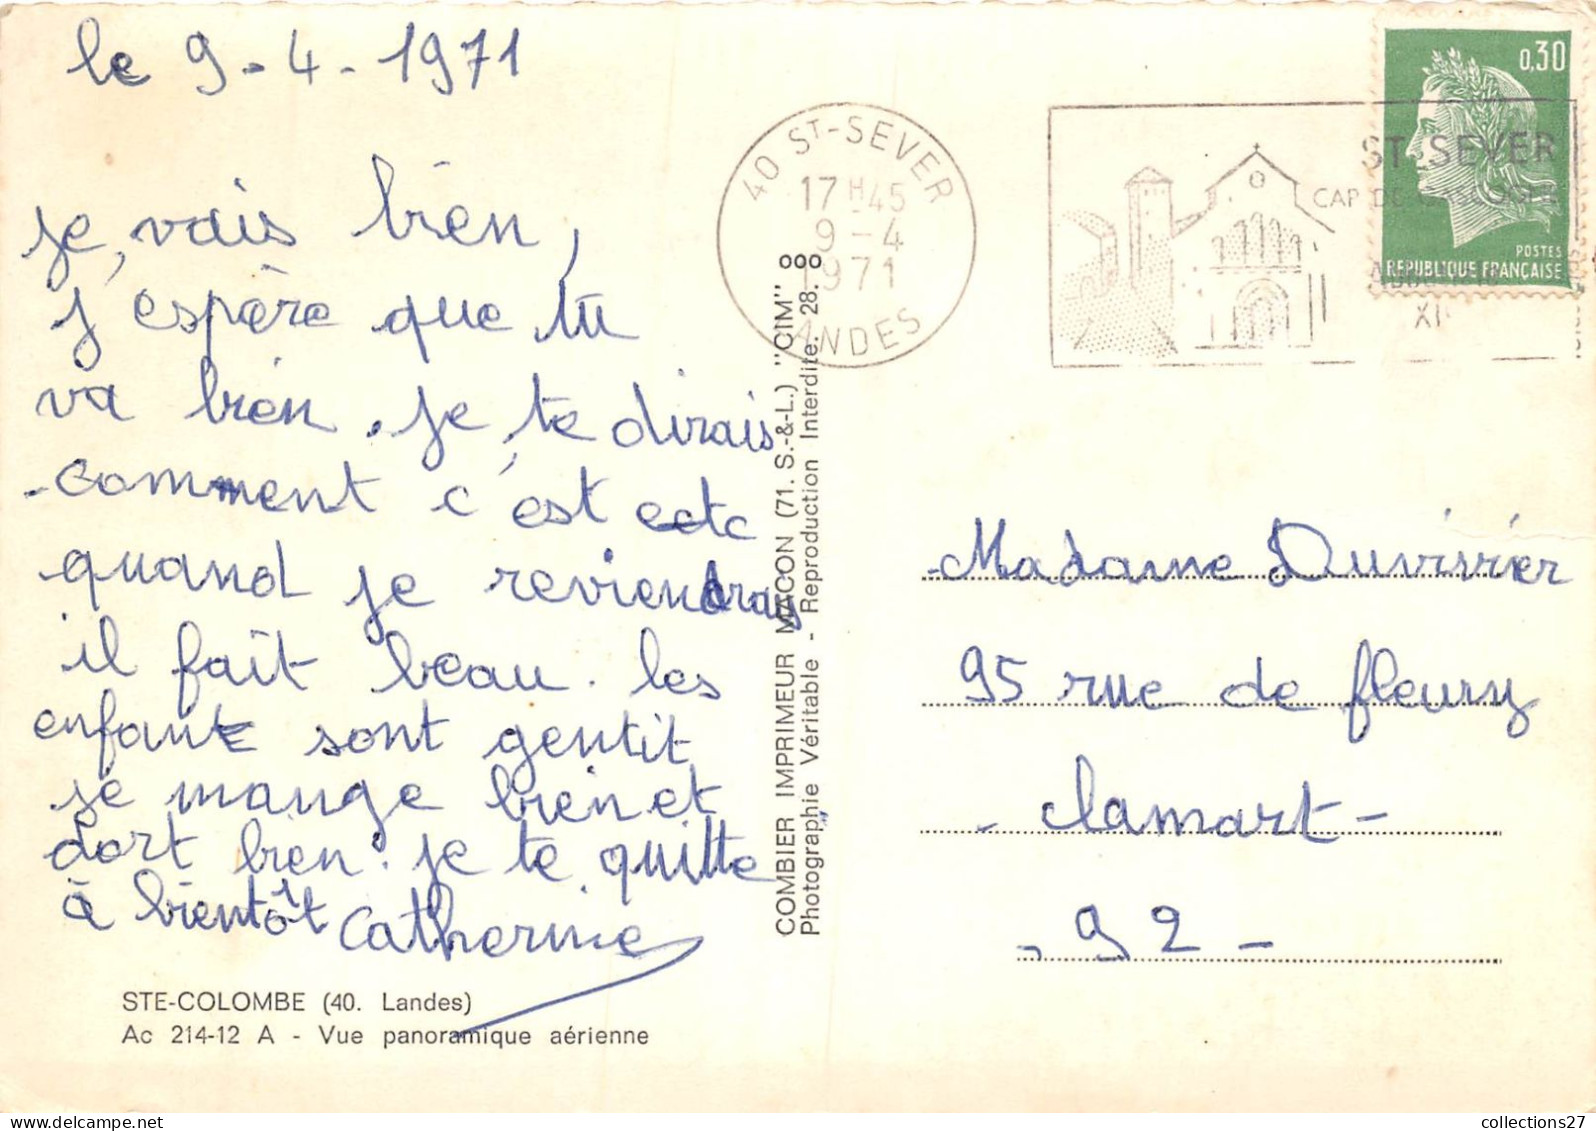 le 9-4-1971
je vais bien,
j'espère que tu
va bien. je te dirais
comment c'est ectc
quand je reviendray
il fait beau. les
enfant sont gentit
je mange bien et
dort bien. je te quitte
à bientôt Catherine
STE-COLOMBE (40. Landes)
Ac 214-12 A - Vue panoramique aérienne
COMBIER IMPRIMEUR MACON (71. S.-&-L.) "CIM"
Photographie Véritable - Reproduction Interdite. 28. ooo
40 ST-SEVER
17 H 45
9-4
1971
LANDES
ST-SEVER
CAP DE GASCOGNE
XI
0,30
POSTES
REPUBLIQUE FRANÇAISE
Madame Duvivier
95 rue de fleury
- Clamart -
- 92 -
collections27